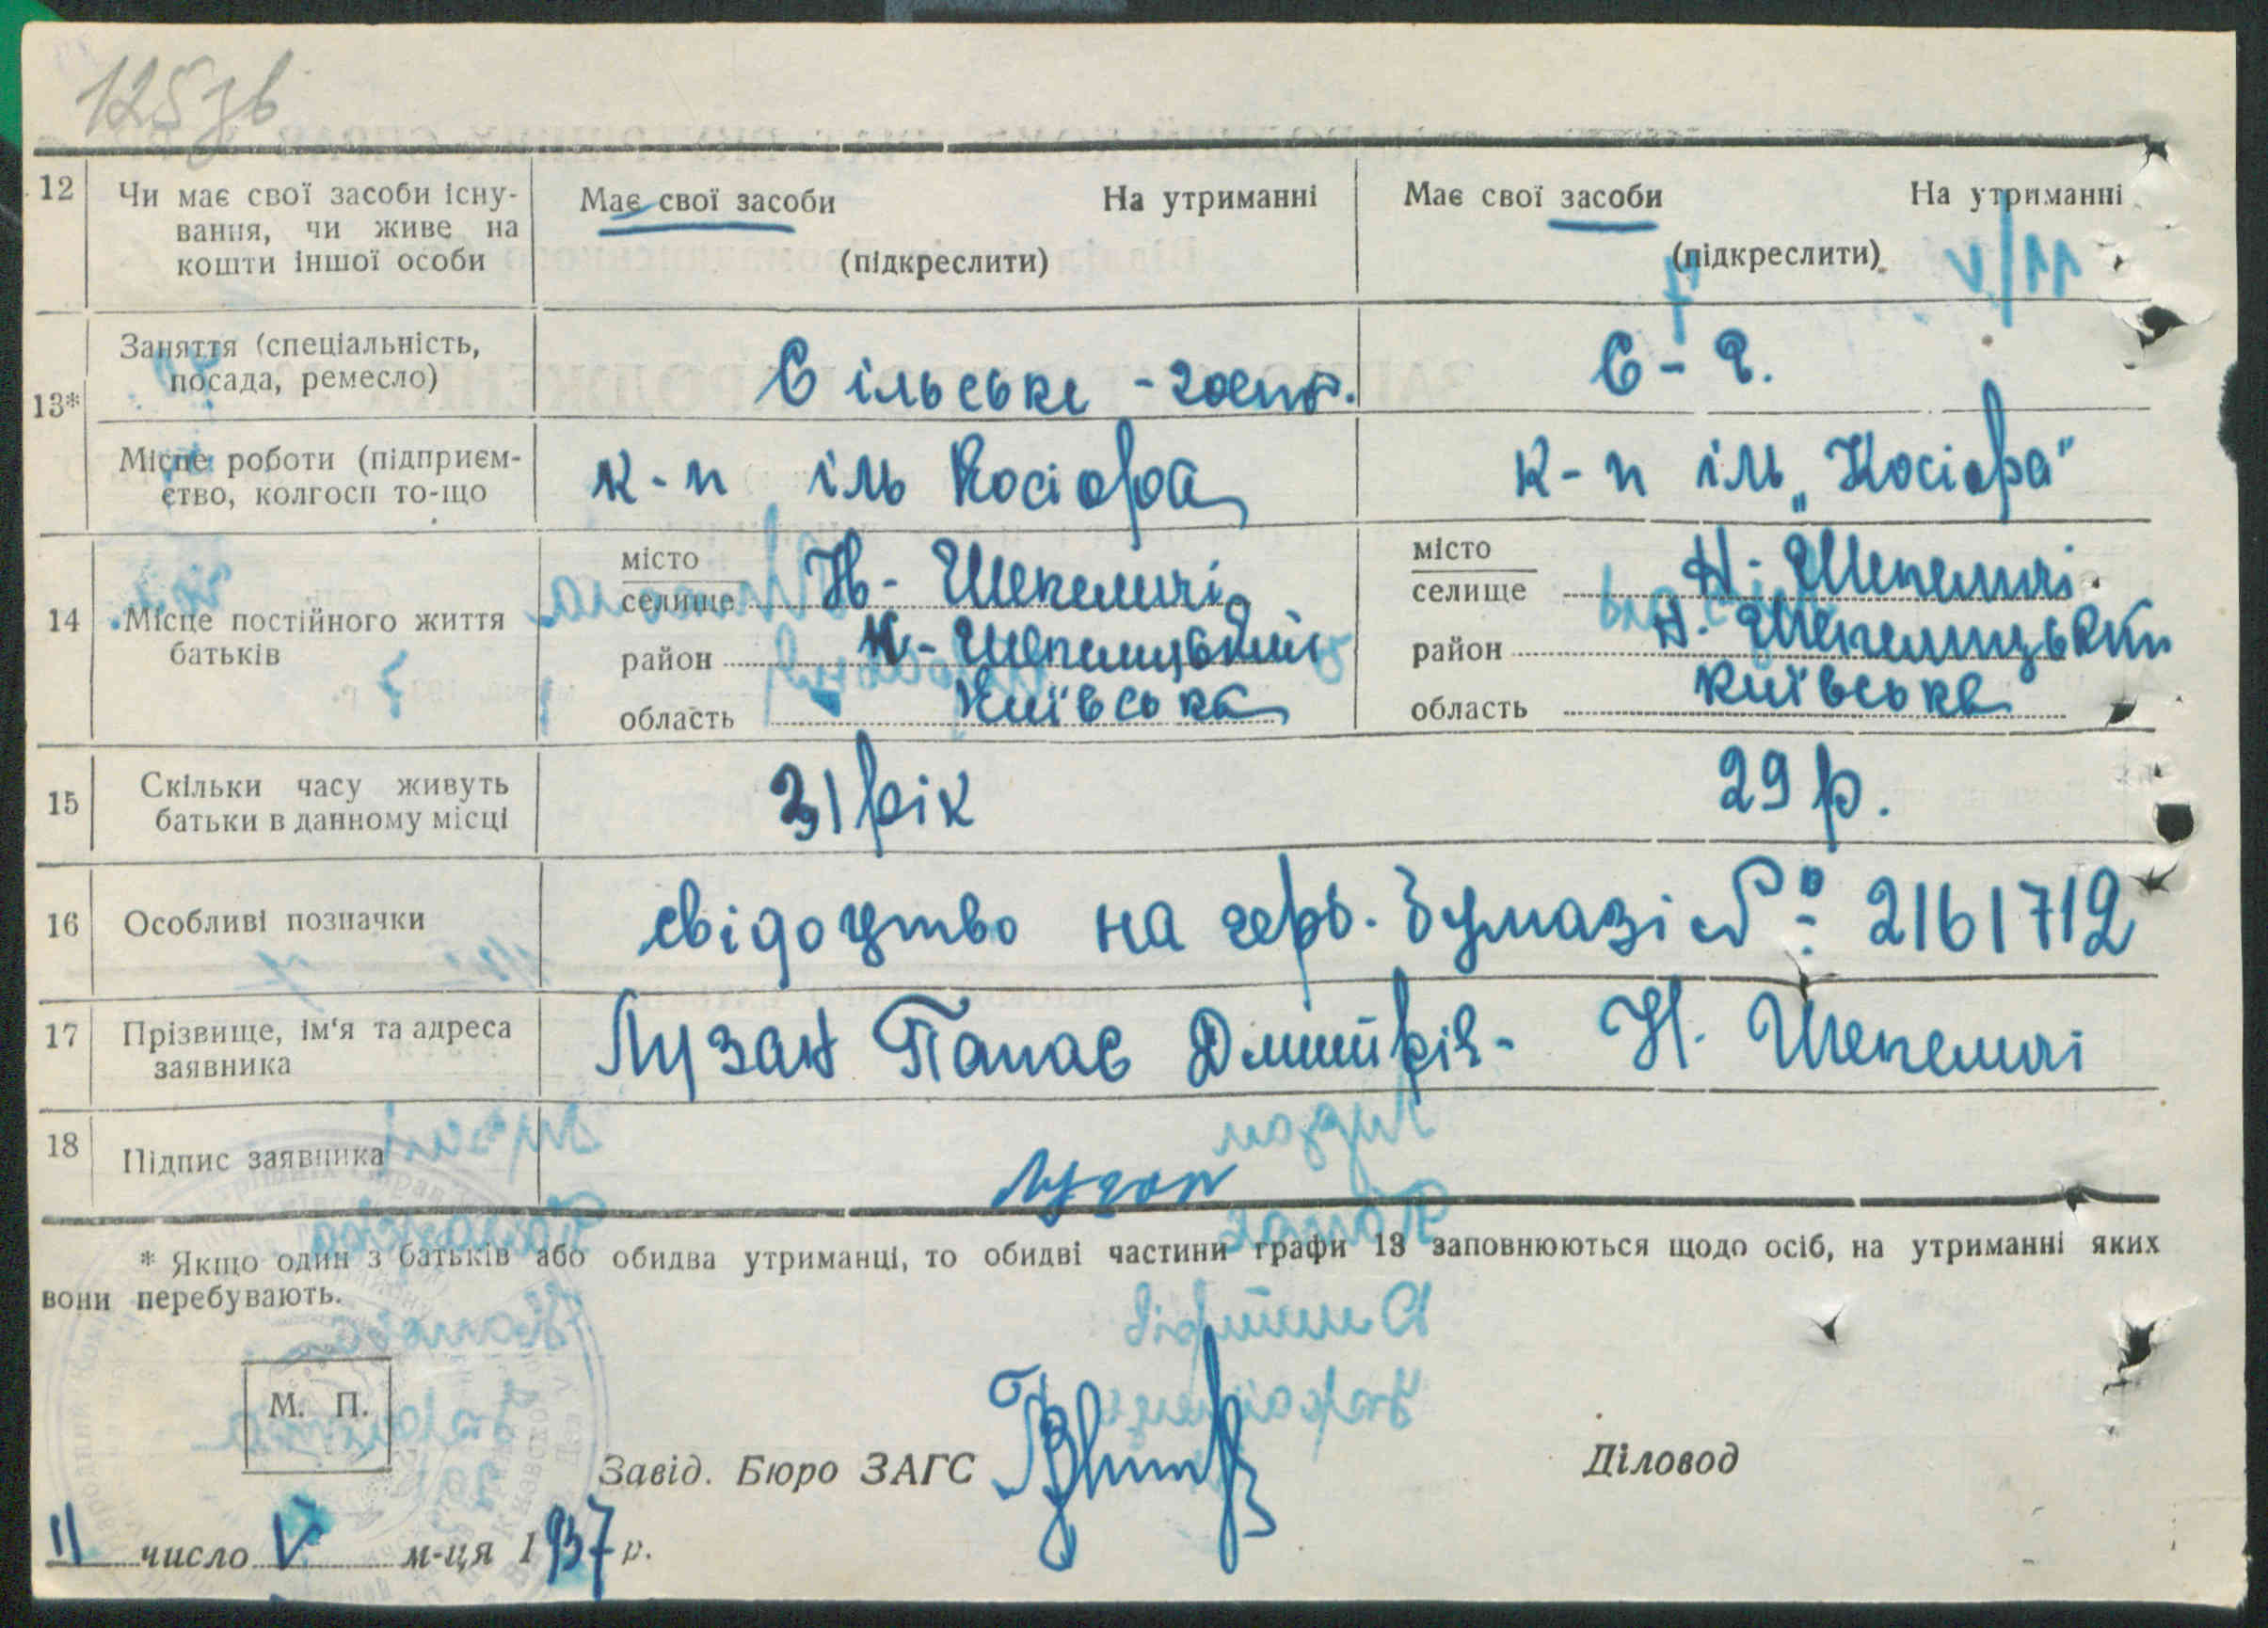 125 зв
12 Чи має свої засоби існу- Має свої засоби На утриманні Має свої засоби На утриманні
вання, чи живе на
кошти іншої особи (підкреслити) (підкреслити)
13* Заняття (спеціальність,
посада, ремесло) Сільське-госпо. С-г.
Місце роботи (підприєм- к-п іль Косіора к-п іль „Косіора"
ство, колгосп то-що
14 Місце постійного життя
батьків
місто
селище Н-Шепеличі
район Н-Шепелицький
область Київська
місто
селище Н. Шепеличі.
район Н. Шепелицьки
область Київська
15 Скільки часу живуть
батьки в данному місці 31 рік 29 р.
16 Особливі позначки свідоцтво на герб. бумазі № 2161712
17 Прізвище, ім'я та адреса
заявника Лузан Панас Дмитрів- Н. Шепеличі
18 Підпис заявника Лузан
* Якщо один з батьків або обидва утриманці, то обидві частини графи 13 заповнюються щодо осіб, на утриманні яких
вони перебувають.
М. П.
Завід. Бюро ЗАГС Діловод
11 число V м-ця 1937 р.